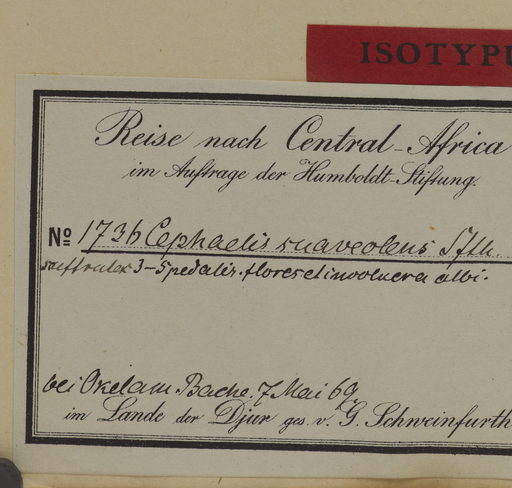 ISOTYPU
Reise nach Central-Africa
im Auftrage der Humboldt-Stiftung.
No 1736 Cephaelis suaveolens Sfth.
suffrutex 3-5 pedalis. flores et involucra albi.
bei Okelam Bache. 7 Mai 69
im Lande der Djur ges. v. G. Schweinfurth